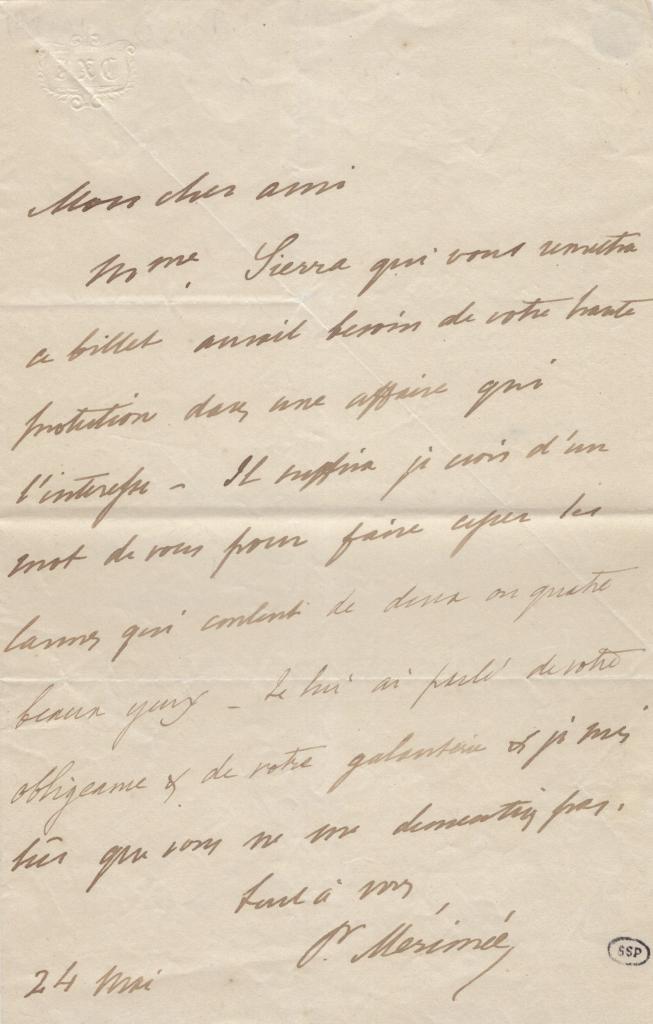 Mon cher ami
Mme. Sierra qui vous remettra
ce billet aurait besoin de votre haute
protection dans une affaire qui
l'interesse - Il suffira je crois d'un
mot de vous pour faire cesser les
larmes qui coulent de deux ou quatre
beaux yeux - Je lui ai parlé de votre
obligeance & de votre galanterie & je suis
sûr que vous ne me dementirez pas.
tout à vous
Pr Mérimée
24 mai
SSP